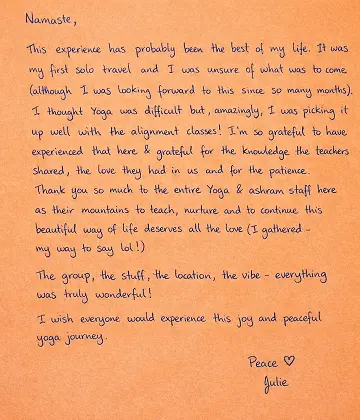 Namaste,
This experience has probably been the best of my life. It was
my first solo travel and I was unsure of what was to come
(although I was looking forward to this since so many months).
I thought Yoga was difficult but, amazingly, I was picking it
up well with the alignment classes! I'm so grateful to have
experienced that here & grateful for the knowledge the teachers
shared, the love they had in us and for the patience.
Thank you so much to the entire Yoga & ashram staff here
as their mountains to teach, nurture and to continue this
beautiful way of life deserves all the love (I gathered -
my way to say lol!)
The group, the stuff, the location, the vibe - everything
was truly wonderful!
I wish everyone would experience this joy and peaceful
yoga journey.
Peace ♡
Julie